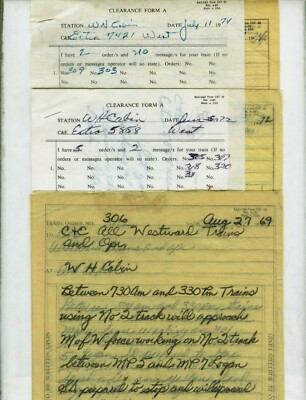 CLEARANCE FORM A
STATION W H Cabin DATE July 11 1974
C&E. Extra 7421 West
I have 2 order/s and no for your train (If no
orders or messages operator will so state). Orders.
No. 309 No. 303 No. No. No.
No. No. No. No. No.
CLEARANCE FORM A
STATION W H Cabin
C&E. Extra 5858 West
I have 5 order/s and 2 messages for your train (If no
orders or messages operator will so state). Orders. No. 305 No. 307
No. No. No. No. 318 No. 320
No. No. No.
TRAIN ORDER NO. 306 Aug 27 69
C+E All Westward Trains
and Oprs
AT W H Cabin
Between 730 Am and 330 Pm Trains
using No 2 track will approach
M of W force working on No 2 track
between MP 5 and MP 7 Logan
prepared to stop and